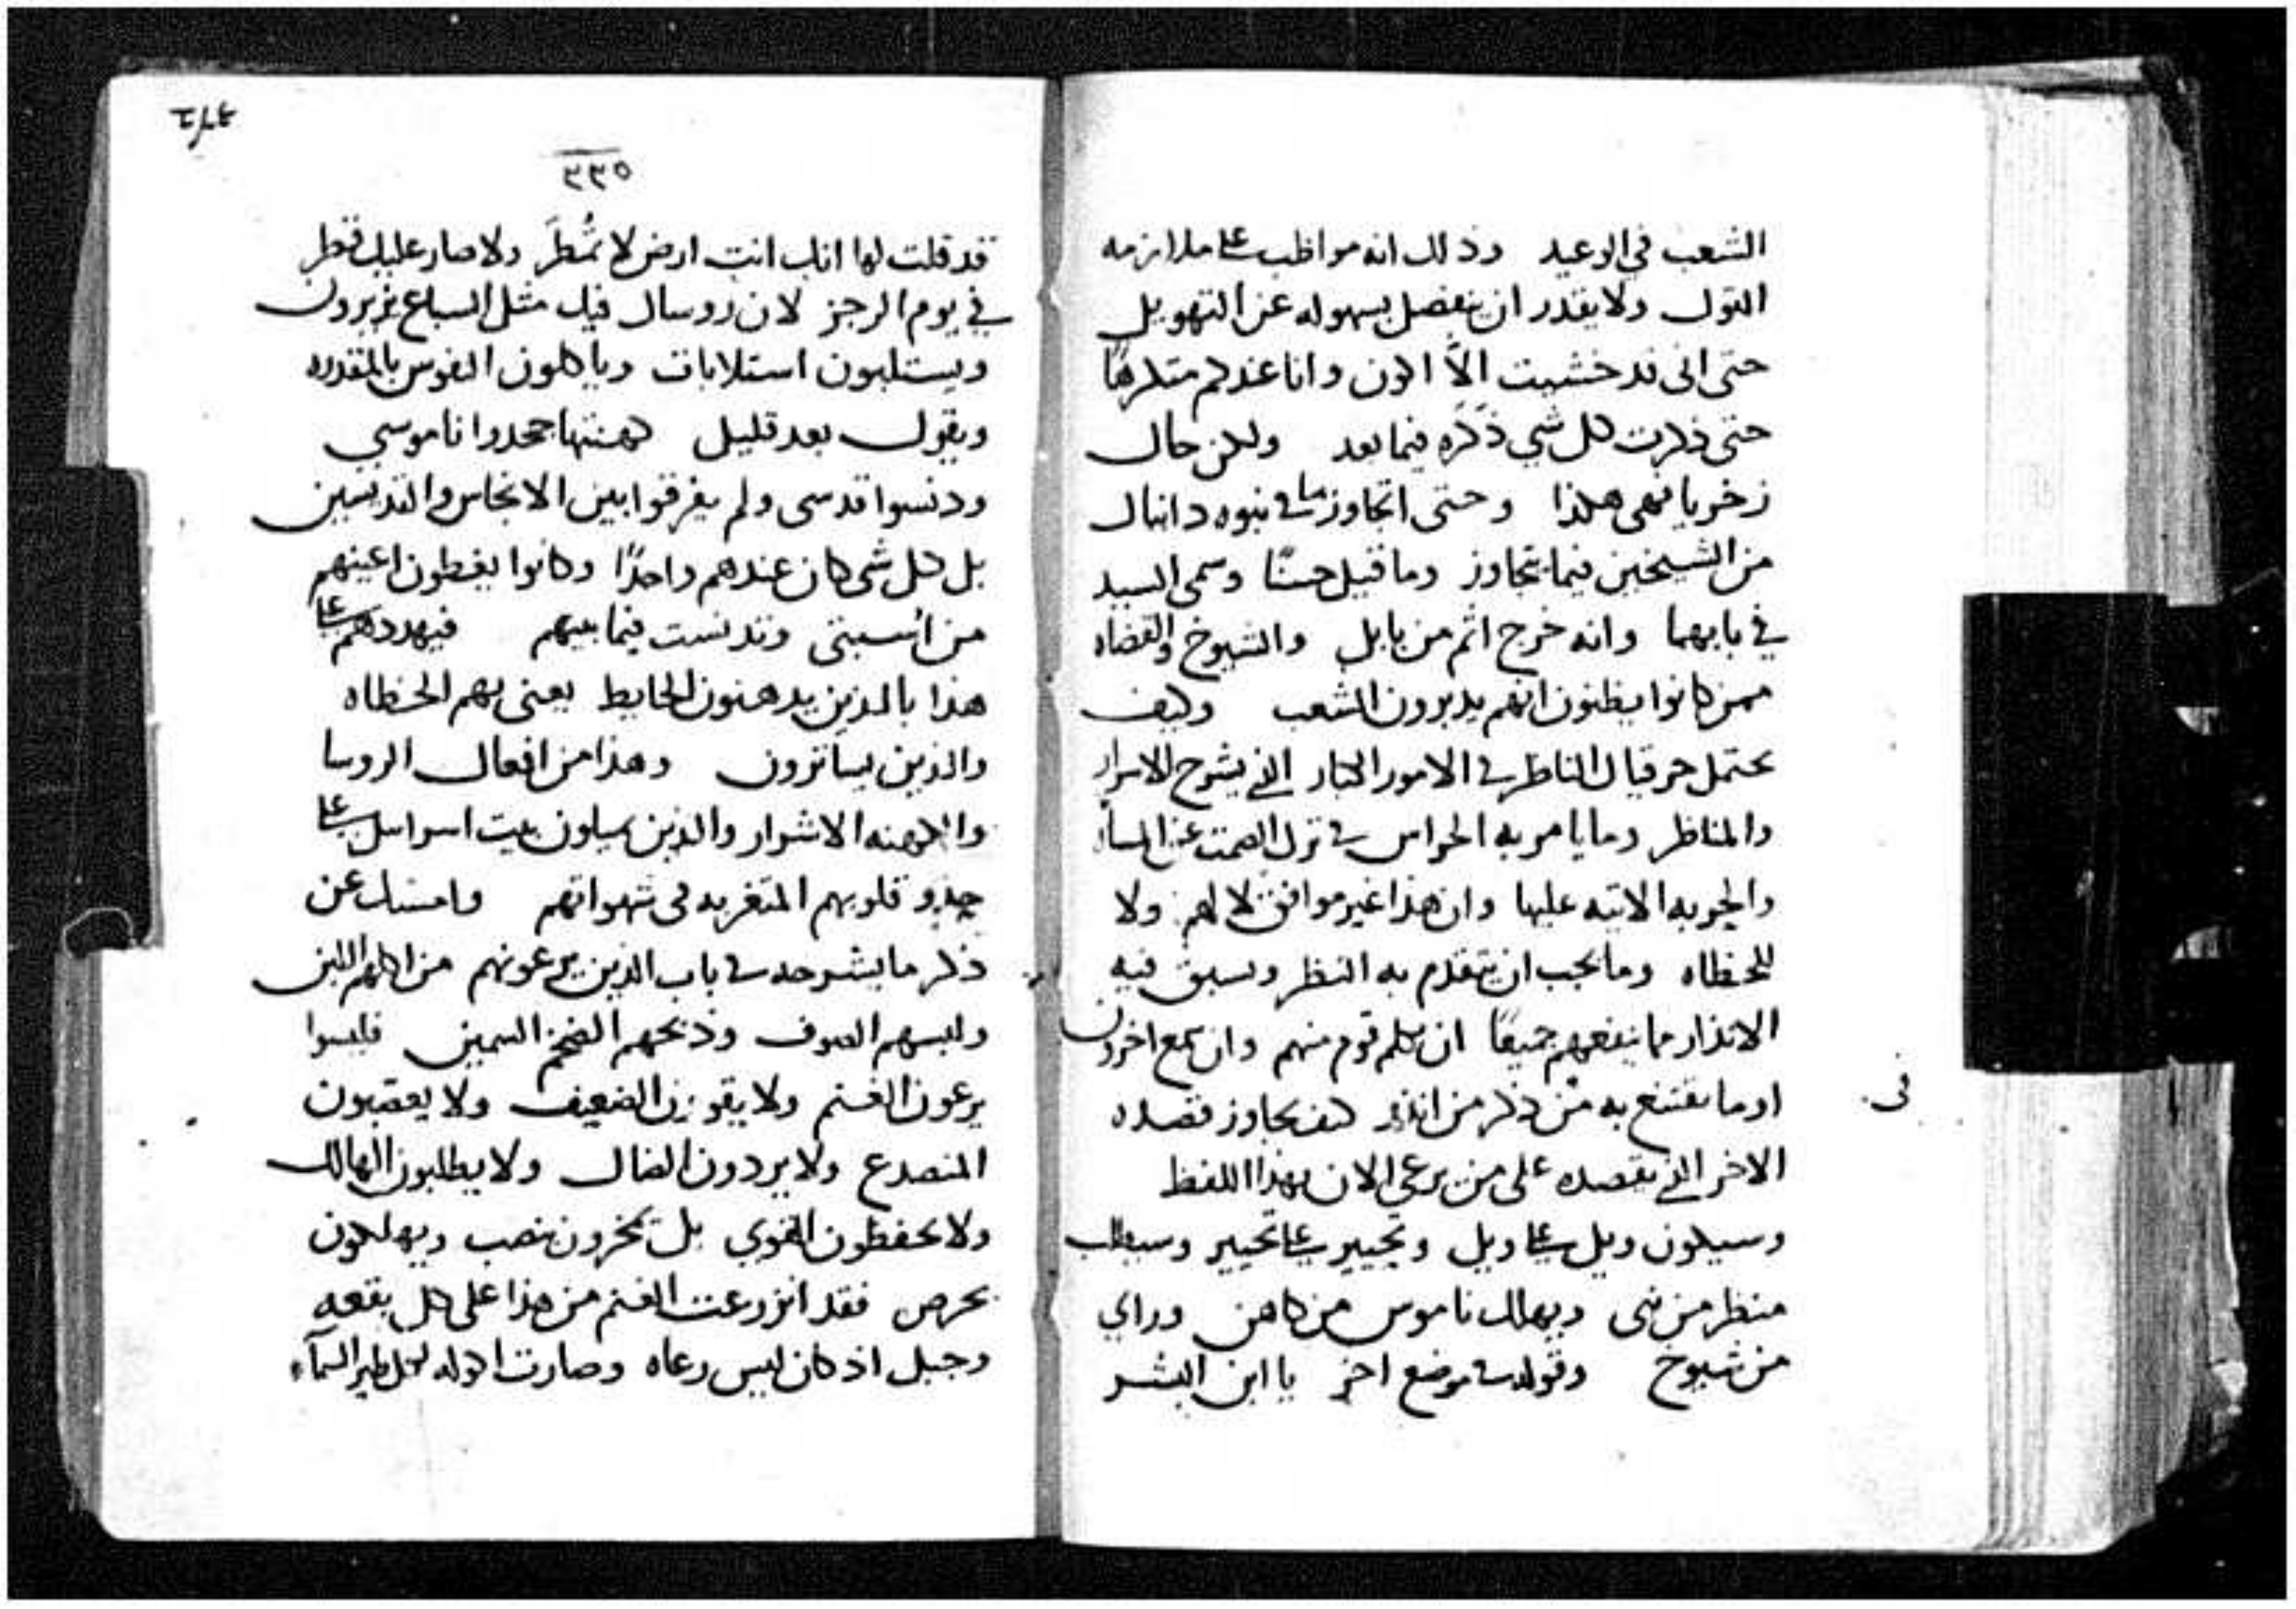 الشعب في الوعيد وذلك انه مواظب على ملازمه
القول ولا يقدر ان ينفصل بسهوله عن التهويل
حتى اني قد خشيت الَّا اكون وانا عندكم متكرهًا
حتى ذكرت كل شي ذَكَره فيما بعد ولكن حال
زخريا فهي هكذا وحتى اتجاوز ما في نبوه دانيال
من الشيخين فيما تجاوز وما قيل حسنًا وسمى السيد
في بابهما وانه خرج اثم من بابل والشيوخ والقضاه
ممن كانوا يظنون انهم يدبرون الشعب وكيف
يحتمل حزقيال الناظر في الامور الكبار الذي يشرح الاسرار
والمناظر وما يامر به الحراس في ترك الصمت عن المساوي
والحربه الاتيه عليها وان هذا غير موافق لا لهم ولا
للخطاه وما يجب ان يتقدم به النظر وسبق فيه
الانذار مما ينفعهم جميعًا ان تكلم قوم منهم وان سمع اخرون
او ما يقتنع به من ذكر من انذر كيف يجاوز قصده
في
الاخر الذي يقصده على من يرعي الان بهذا اللفظ
وسيكون ويل على ويل وتحيير على تحيير وسيطلب
منظر من نبى ويهلك ناموس من كاهن وراي
من شيوخ وقوله في موضع اخر يا ابن البشر
٢٣٥
قد قلت لها انك انت ارض لا تُمطَر ولا صار عليك قطر
في يوم الرجز لان روسالك فيك مثل السباع يزيرون
ويستلبون استلابات وياكلون النفوس بالمقدره
ويقول بعد قليل كهنتها جحدوا ناموسي
ودنسوا قدسى ولم يفرقوا بين الانجاس والقديسين
بل كل شى كان عندهم واحدًا وكانوا يغطون اعينهم
من أسبتي وتدنست فيما بينهم فيهددهم على
هذا بالذين يدهنون الحايط يعنى بهم الخطاه
والذين يساترون وهذا من افعال الروسا
والكهنه الاشرار والذين يسلون بيت اسراييل على
حذو قلوبهم المتغربه فى شهواتهم وامسك عن
ذكر ما يشرحه في باب الذين يرعونهم من اكلهم اللبن
ولبسهم الصوف وذبحهم الضخم السمين فليسوا
يرعون الغنم ولا يقوون الضعيف ولا يعصبون
المنصدع ولا يردون الضال ولا يطلبون الهالك
ولا يحفظون القوي بل يخزون بنصب ويهلكون
بحرص فقد انزرعت الغنم من هذا على كل بقعه
وجبل اذ كان ليس رعاه وصارت اكوله لكل طير السمآء